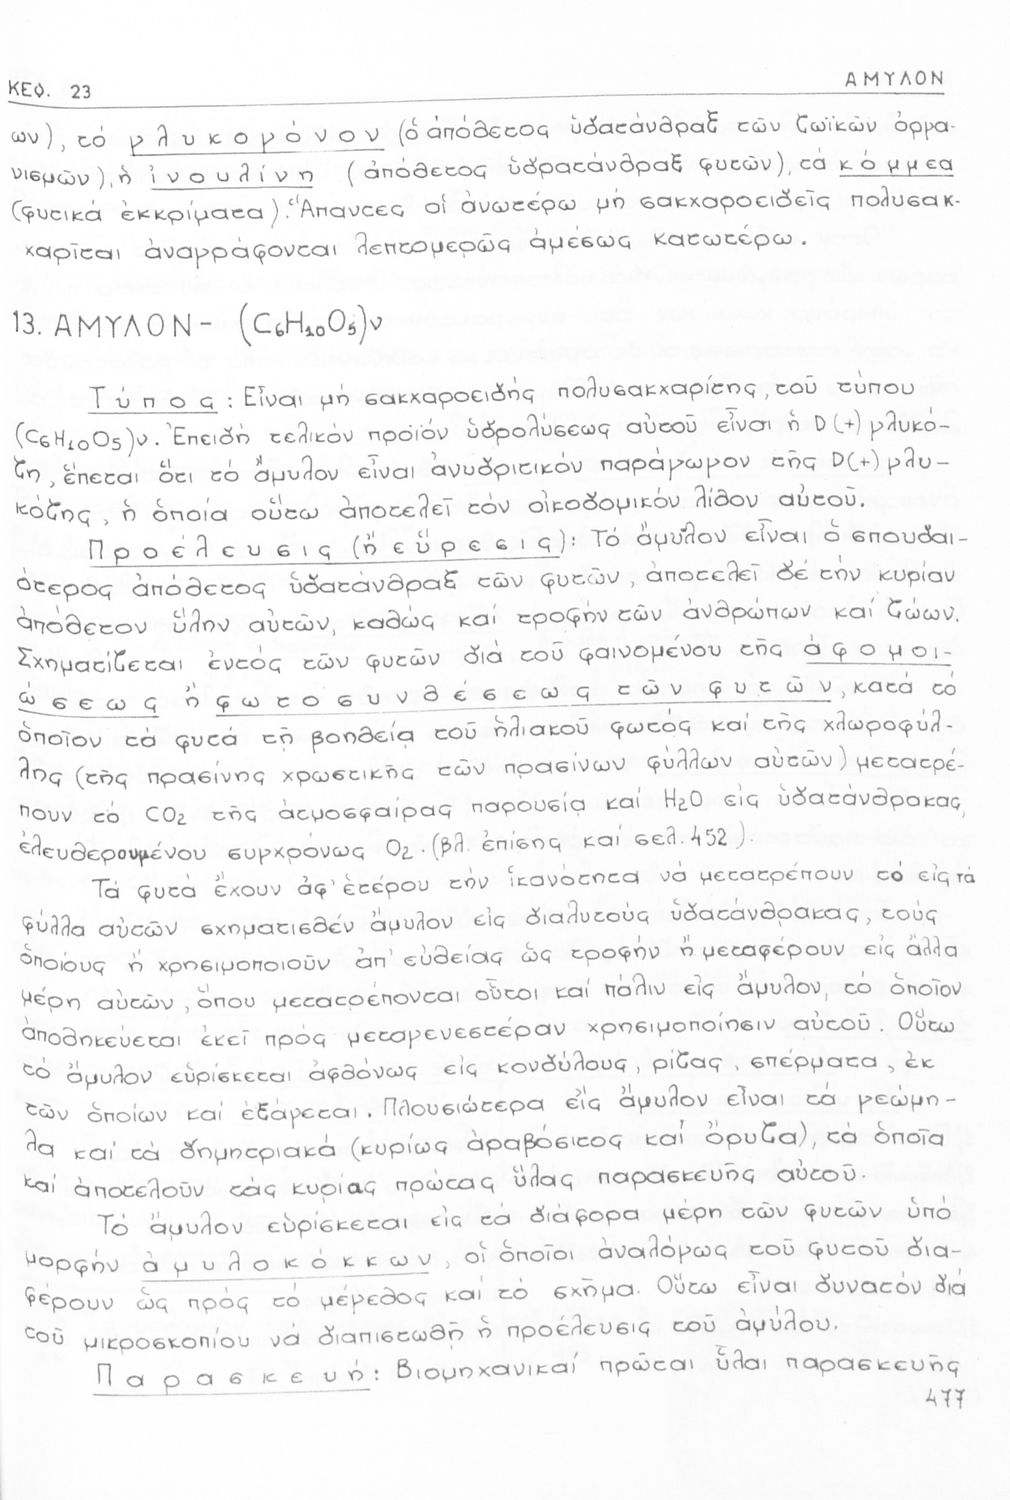 ΚΕΦ. 23
ΑΜΥΛΟΝ
ων), τό γλυκογόνον (ὁ ἀπόθετος ὑδατάνθραξ τῶν ζωϊκῶν ὀργα-
νισμῶν), ἡ ἰνουλίνη (ἀπόθετος ὑδρατάνθραξ φυτῶν), τά κόμμεα
(φυτικά ἐκκρίματα). Ἅπαντες οἱ ἀνωτέρω μή σακχαροειδεῖς πολυσακ-
χαρῖται ἀναγράφονται λεπτομερῶς ἀμέσως κατωτέρω.
13. ΑΜΥΛΟΝ - (C6H10O5)ν
Τύπος: Εἶναι μή σακχαροειδής πολυσακχαρίτης, τοῦ τύπου
(C6H10O5)ν. Ἐπειδή τελικόν προϊόν ὑδρολύσεως αὐτοῦ εἶναι ἡ D(+) γλυκό-
ζη, ἕπεται ὅτι τό ἄμυλον εἶναι ἀνυδριτικόν παράγωγον τῆς D(+) γλυ-
κόζης, ἡ ὁποία οὕτω ἀποτελεῖ τόν οἰκοδομικόν λίθον αὐτοῦ.
Προέλευσις (ἤ εὕρεσις): Τό ἄμυλον εἶναι ὁ σπουδαι-
ότερος ἀπόθετος ὑδατάνθραξ τῶν φυτῶν, ἀποτελεῖ δέ τήν κυρίαν
ἀπόθετον ὕλην αὐτῶν, καθώς καί τροφήν τῶν ἀνθρώπων καί ζώων.
Σχηματίζεται ἐντός τῶν φυτῶν διά τοῦ φαινομένου τῆς ἀφομοι-
ώσεως ἤ φωτοσυνθέσεως τῶν φυτῶν, κατά τό
ὁποῖον τά φυτά τῇ βοηθείᾳ τοῦ ἡλιακοῦ φωτός καί τῆς χλωροφύλ-
λης (τῆς πρασίνης χρωστικῆς τῶν πρασίνων φύλλων αὐτῶν) μετατρέ-
πουν τό CO2 τῆς ἀτμοσφαίρας παρουσίᾳ καί H2O εἰς ὑδατάνθρακας,
ἐλευθερουμένου συγχρόνως O2. (βλ. ἐπίσης καί σελ. 452).
Τά φυτά ἔχουν ἀφ' ἑτέρου τήν ἱκανότητα νά μετατρέπουν τό εἰς τά
φύλλα αὐτῶν σχηματισθέν ἄμυλον εἰς διαλυτούς ὑδατάνθρακας, τούς
ὁποίους ἤ χρησιμοποιοῦν ἀπ' εὐθείας ὡς τροφήν ἤ μεταφέρουν εἰς ἄλλα
μέρη αὐτῶν, ὅπου μετατρέπονται οὗτοι καί πάλιν εἰς ἄμυλον, τό ὁποῖον
ἀποθηκεύεται ἐκεῖ πρός μεταγενεστέραν χρησιμοποίησιν αὐτοῦ. Οὕτω
τό ἄμυλον εὑρίσκεται ἀφθόνως εἰς κονδύλους, ρίζας, σπέρματα, ἐκ
τῶν ὁποίων καί ἐξάγεται. Πλουσιώτερα εἰς ἄμυλον εἶναι τά γεώμη-
λα καί τά δημητριακά (κυρίως ἀραβόσιτος καί ὄρυζα), τά ὁποῖα
καί ἀποτελοῦν τάς κυρίας πρώτας ὕλας παρασκευῆς αὐτοῦ.
Τό ἄμυλον εὑρίσκεται εἰς τά διάφορα μέρη τῶν φυτῶν ὑπό
μορφήν ἀμυλοκόκκων, οἱ ὁποῖοι ἀναλόγως τοῦ φυτοῦ δια-
φέρουν ὡς πρός τό μέγεθος καί τό σχῆμα. Οὕτω εἶναι δυνατόν διά
τοῦ μικροσκοπίου νά διαπιστωθῇ ἡ προέλευσις τοῦ ἀμύλου.
Παρασκευή: Βιομηχανικαί πρῶται ὗλαι παρασκευῆς
477